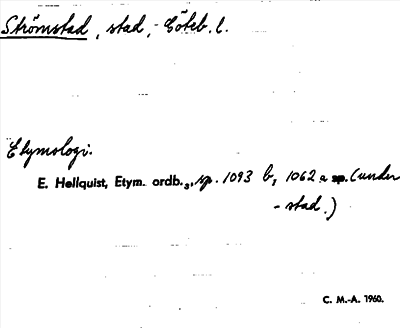 Strömstad, stad, Göteb. l.
Etymologi.
E. Hellquist, Etym. ordb.3, sp. 1093 b, 1062 a sp. (under
- stad.)
C. M.-A. 1960.